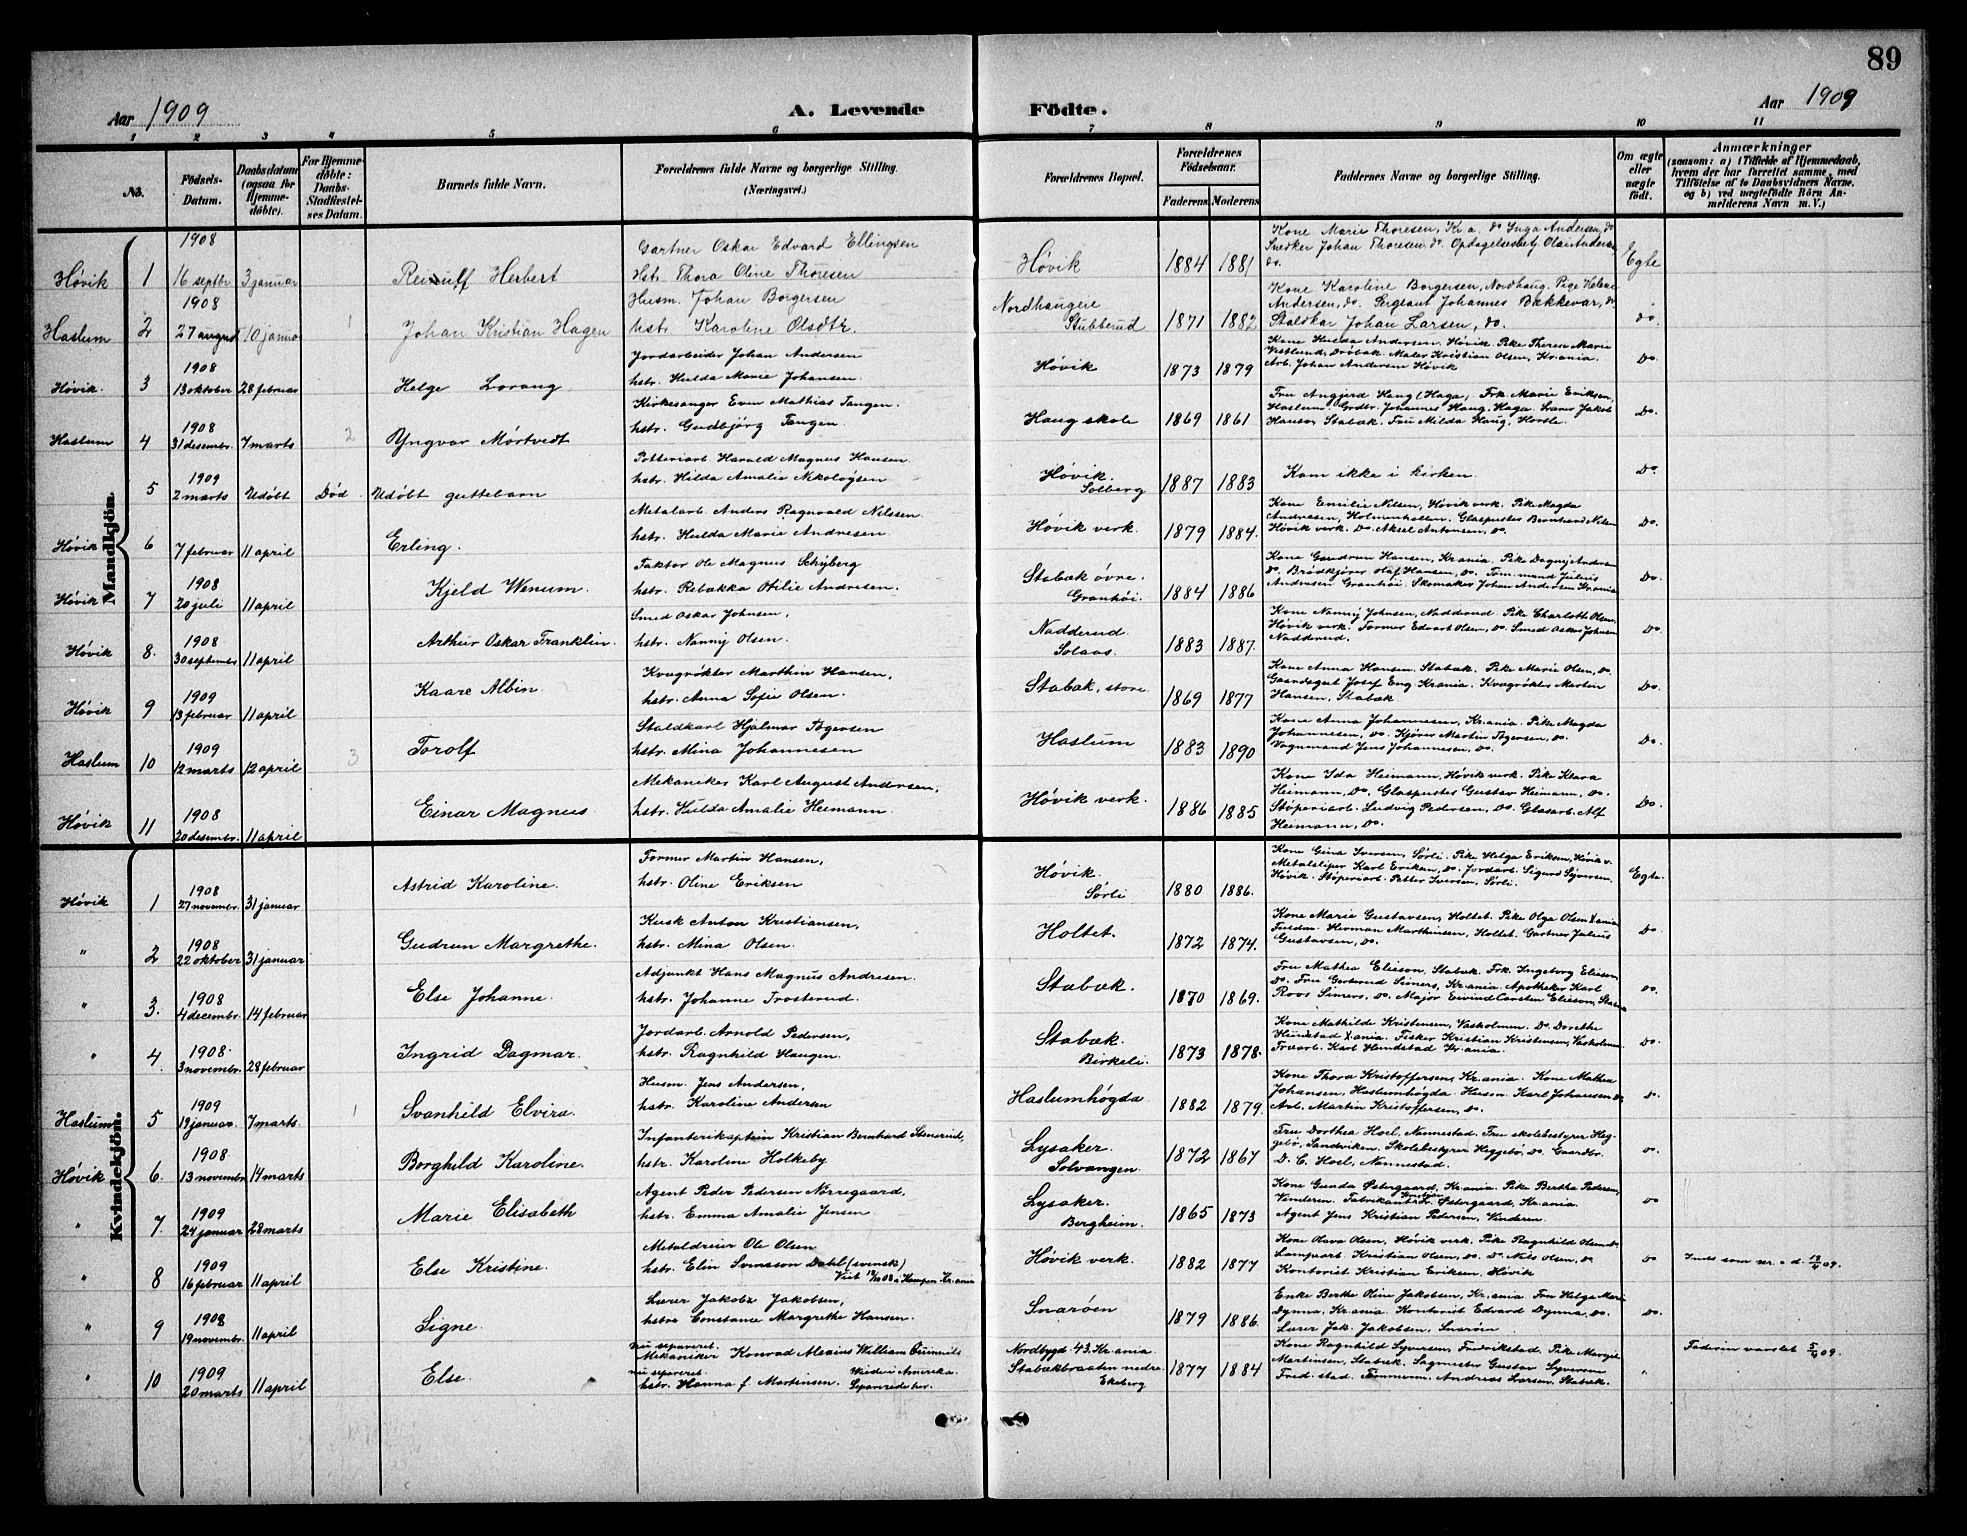 89
Aar 1909
A. Levende Födte.
Aar 1909
1 2 3 4 5 6 7 8 9 10 11
No. Födsels-Datum. Daabsdatum (ogsaa for Hjemme-döbte). For Hjemme-döbte: Daabs-Stadfæstel-ses Datum. Barnets fulde Navn. Forældrenes fulde Navne og borgerlige Stilling. (Næringsvei.) Forældrenes Bopæl. Forældrenes Födselsaar. Faderens Moderens Faddernes Navne og borgerlige Stilling. Om ægte eller uægte födt. Anmærkninger (saasom: a) i Tilfælde af Hjemmedaab, hvem der har forrettet samme, med Tilföielse af to Daabsvidners Navne, og b) ved uægtefödte Börn An-melderens Navn m. V.)
Mandkjön.
Høvik 1 1908 16 septbr 3 januar Herbert
Gartner Oskar Edvard Ellingsen
Hstr. Thora Oline Thoresen
Høvik 1884 1881
Kone Marie Thoresen, Kr.a. do Inga Andersen, do
Snedker Johan Thoresen, do. Opdagelsesbetj. Olai Andersen
do.
Egte
Haslum 2 1908 27 august 10 januar 1 Johan Kristian Hagen
Husm. Johan Borgersen
hstr. Karoline Olsdtr.
Nordhaugene
Stubberud 1871 1882
Kone Karoline Borgersen, Nordhaug. Pige Helene
Andersen, do. Sergeant Johannes Bækkevar, do.
Staldkar Johan Larsen, do.
do.
Høvik. 3 1908 13 oktober 28 februar Helge Lorang
Jordarbeider Johan Andersen
hstr. Hulda Marie Johansen.
Høvik 1873 1879
Kone Hulda Andersen, Høvik. Pike Marie
Vestlund, Drøbak. Maler Kristian Olsen, Kr.ania.
Arb. Johan Andersen Høvik
Do.
Haslum 4 1908 31 desembr. 7 marts 2 Yngvar Mörtvedt
Kirkesanger Even Mathias Tangen.
hstr. Gudbjörg Tangen.
Haug skole 1869 1861
Fru Haug, Haga, Frk. Marie Eriksen,
Haslum. Grdbr. Johannes Haug, Haga. Jakob
Hanson, Stabæk. Fru Milda Haug,
Do.
5 1909 2 marts Udöbt Död Udöbt guttebarn
Potteriarb. Harald Magnus Hansen
hstr. Hilda Amalie Nikolaysen
Høvik.
Solberg 1887 1883
Kom ikke i kirken.
Do.
Høvik 6 7 februar 11 april Erling.
Metalarb. Anders Ragnvald Nilssen.
hstr. Hulda Marie Andresen.
Høvik verk. 1879 1884.
Kone Emilie Nilsen, Høvik verk. Pike Magda
Andresen, Holmenkollen. Glaspuster Bernhard Nilsen
Høvik verk. Do. Aksel Antonsen, do.
Do.
Høvik 7 1908 20 juli 11 april Kjeld Wenum.
Faktor Ole Magnus Schyberg
hstr. Rebekka Otilie Andresen.
Stabæk övre.
Granhöi. 1884 1886
Kone Gundrun Hansen, Kr.ania. Pike Dagny Andersen
do. Brödkjörer Olaf Hansen, do. Tömmermand Julius
Andresen Granhöi. Skomaker Johan Andersen Kr.ania
Do.
Høvik 8. 1908 30 septembr 11 april Arthur Oskar Franklin.
Smed Oskar Johnsen,
hstr. Nanny Olsen.
Nadderud.
Solaas. 1883 1887.
Kone Nanny Johnsen, Nadderud. Pike Charlotte Olsen,
Høvik verk. Former Edvart Olsen, do. Smed Oskar Johnsen
Nadderud.
Do.
Høvik 9 1909 13 februar 11 april Kaare Albin.
Kvægrøkter Marthin Hansen,
hstr. Anna Sofie Olsen.
Stabæk, store. 1869 1877
Kone Anna Hansen. Stabæk. Pike Marie Olsen, do.
Gaardsgut Josef Eng Kr.ania. Kvægrøkter Martin
Hansen, Stabæk
Do.
Haslum 10 1909 12 marts 12 april 3 Torolf
Staldkarl Hjalmar Togersen
hstr. Mina Johannesen
Haslum 1883 1890
Kone Anna Johannesen, Kr.ania. Pike Magda
Johannesen, do. Kjörer Martin Togersen, do.
Vognmand Jens Johannesen, do.
Do.
Høvik 11 1908 20 desembr. 11 april Einar Magnus.
Mekaniker Karl August Andersen,
hstr. Hulda Amalie Heimann.
Høvik verk. 1886 1885
Kone Ida Heimann, Høvik verk. Pike Klara
Heimann, Do. Glaspuster Gustav Heimann, do.
Støperiarb. Ludvig Pedersen, do. Glasarb. Alf
Heimann, do.
Do.
Kvindekjön.
Høvik 1 1908 27 novembr. 31 januar Astrid Karoline.
Former Martin Hansen,
hstr. Oline Eriksen
Høvik.
Sørli 1880 1886.
Kone Gina Iversen, Sørli. Pike Helga Eriksen, Høvik v.
Metalsliper Karl Eriksen, do. Jordarb. Sigurd Syversen
Høvik. Støperiarb. Petter Iversen, Sørli.
Egte.
" 2 1908 22 oktober 31 januar Gudrun Margrethe.
Kusk Anton Kristiansen,
hstr. Mina Olsen.
Holtet. 1872 1874.
Kone Marie Gustavsen, Holtet. Pike Olga Olsen X.ania
Herman Marthinsen, Holtet. Gartner Julius
Gustavsen, do.
Do
" 3. 1908 4 decembr. 14 februar Else Johanne.
Adjunkt Hans Magnus Andresen.
hstr. Johanne Trosterud.
Stabæk. 1870 1869.
Fru Mathea Elieson, Stabæk. Frk. Ingeborg Elieson,
do. Fru Gertrud Simers, Kr.ania. Apotheker Karl
Roos Simers, do. Major Eivind Carsten Elieson, Stabæk
Do.
" 4. 1908. 3 novembr. 28 februar Ingrid Dagmar.
Jordarb. Arnold Pedersen,
hstr. Ragnhild Haugen.
Stabæk.
Birkeli. 1873 1878.
Kone Mathilde Kristensen, Vakholmen. Do. Dorethe
Hundstad X.ania. Fisker Kristian Kristensen, Vakholmen
Karl Hundstad Kr.ania.
Do.
Haslum 5 1909 19 januar. 7 marts. 1 Svanhild Elvira.
Husm. Jens Andersen,
hstr. Karoline Andersen
Haslumhögda. 1882 1879.
Kone Thora Kristoffersen, Kr.ania. Kone Mathea
Johansen, Haslumhögda. Husm. Karl Johansen do
Arb. Martin Kristoffersen, do.
Do.
Høvik 6. 1908 13 novembr. 14 marts Borghild Karoline.
Infanterikaptein Kristian Bernhard Stenerud,
hstr. Karoline Holkeby
Lysaker.
Solvangen 1872 1867
Fru Dorthea Hoel, Nannestad. Fru skolebestyrer Heg-
gebö, Sandviken. Skolebestyrer Heggebö, do. Gaardbr.
D. C. Hoel, Nannestad.
Do.
" 7. 1909 24 januar 28 marts Marie Elisabeth
Agent Peder Pedersen Nörregaard,
hstr. Emma Amalie Jensen
Lysaker.
Bergheim. 1865 1873
Kone Gunda Østergaard, Kr.ania. Pike Berthe Pedersen,
Vinderen. Fabrikant Østergaard, Kr.ania.
Agent Jens Kristian Pedersen, Vinderen.
Do
" 8 1909 16 februar 11 april Else Kristine.
Metaldreier Ole Olsen
hstr. Elin Svensson Dahl (svensk)
Høvik verk 1882 1877
Kone Olava Olsen, Høvik verk. Pike Ragnhild Olsen do
Lampearb. Kristian Olsen, do. Do. Nils Olsen, do
Kontorist Kristian Eriksen, Høvik
Do
Inds. som nr. 13/4 09.
" 9 1908 19 novembr. 11 april Signe.
Lærer Jakob Jakobsen,
hstru Constance Margrethe Hansen.
Snaröen 1879 1886.
Enke Berthe Oline Jakobsen, Kr.ania. Fru Helga Marie
Dynna, Kr.ania. Kontorist Edvard Dynna, do.
Lærer Jak. Jakobsen, Snaröen
Do.
" 10 1909 20 marts 11 april Else.
nu separeret.
Mekaniker Konrad Alexius William
nu separeret.
hstr. Hanna f. Martinsen.
Nordbygd 43. Kr.ania
Stabækbraaten nedre
Ekeberg 1877 1884
Kone Ragnhild Syversen, Fredrikstad. Pike Margit
Martinsen, Stabæk. Sagmester Gustav Syversen
Fred.stad. Tömmerm. Andreas Larsen, Stabæk.
"
Faderen varslet 5/4 09.